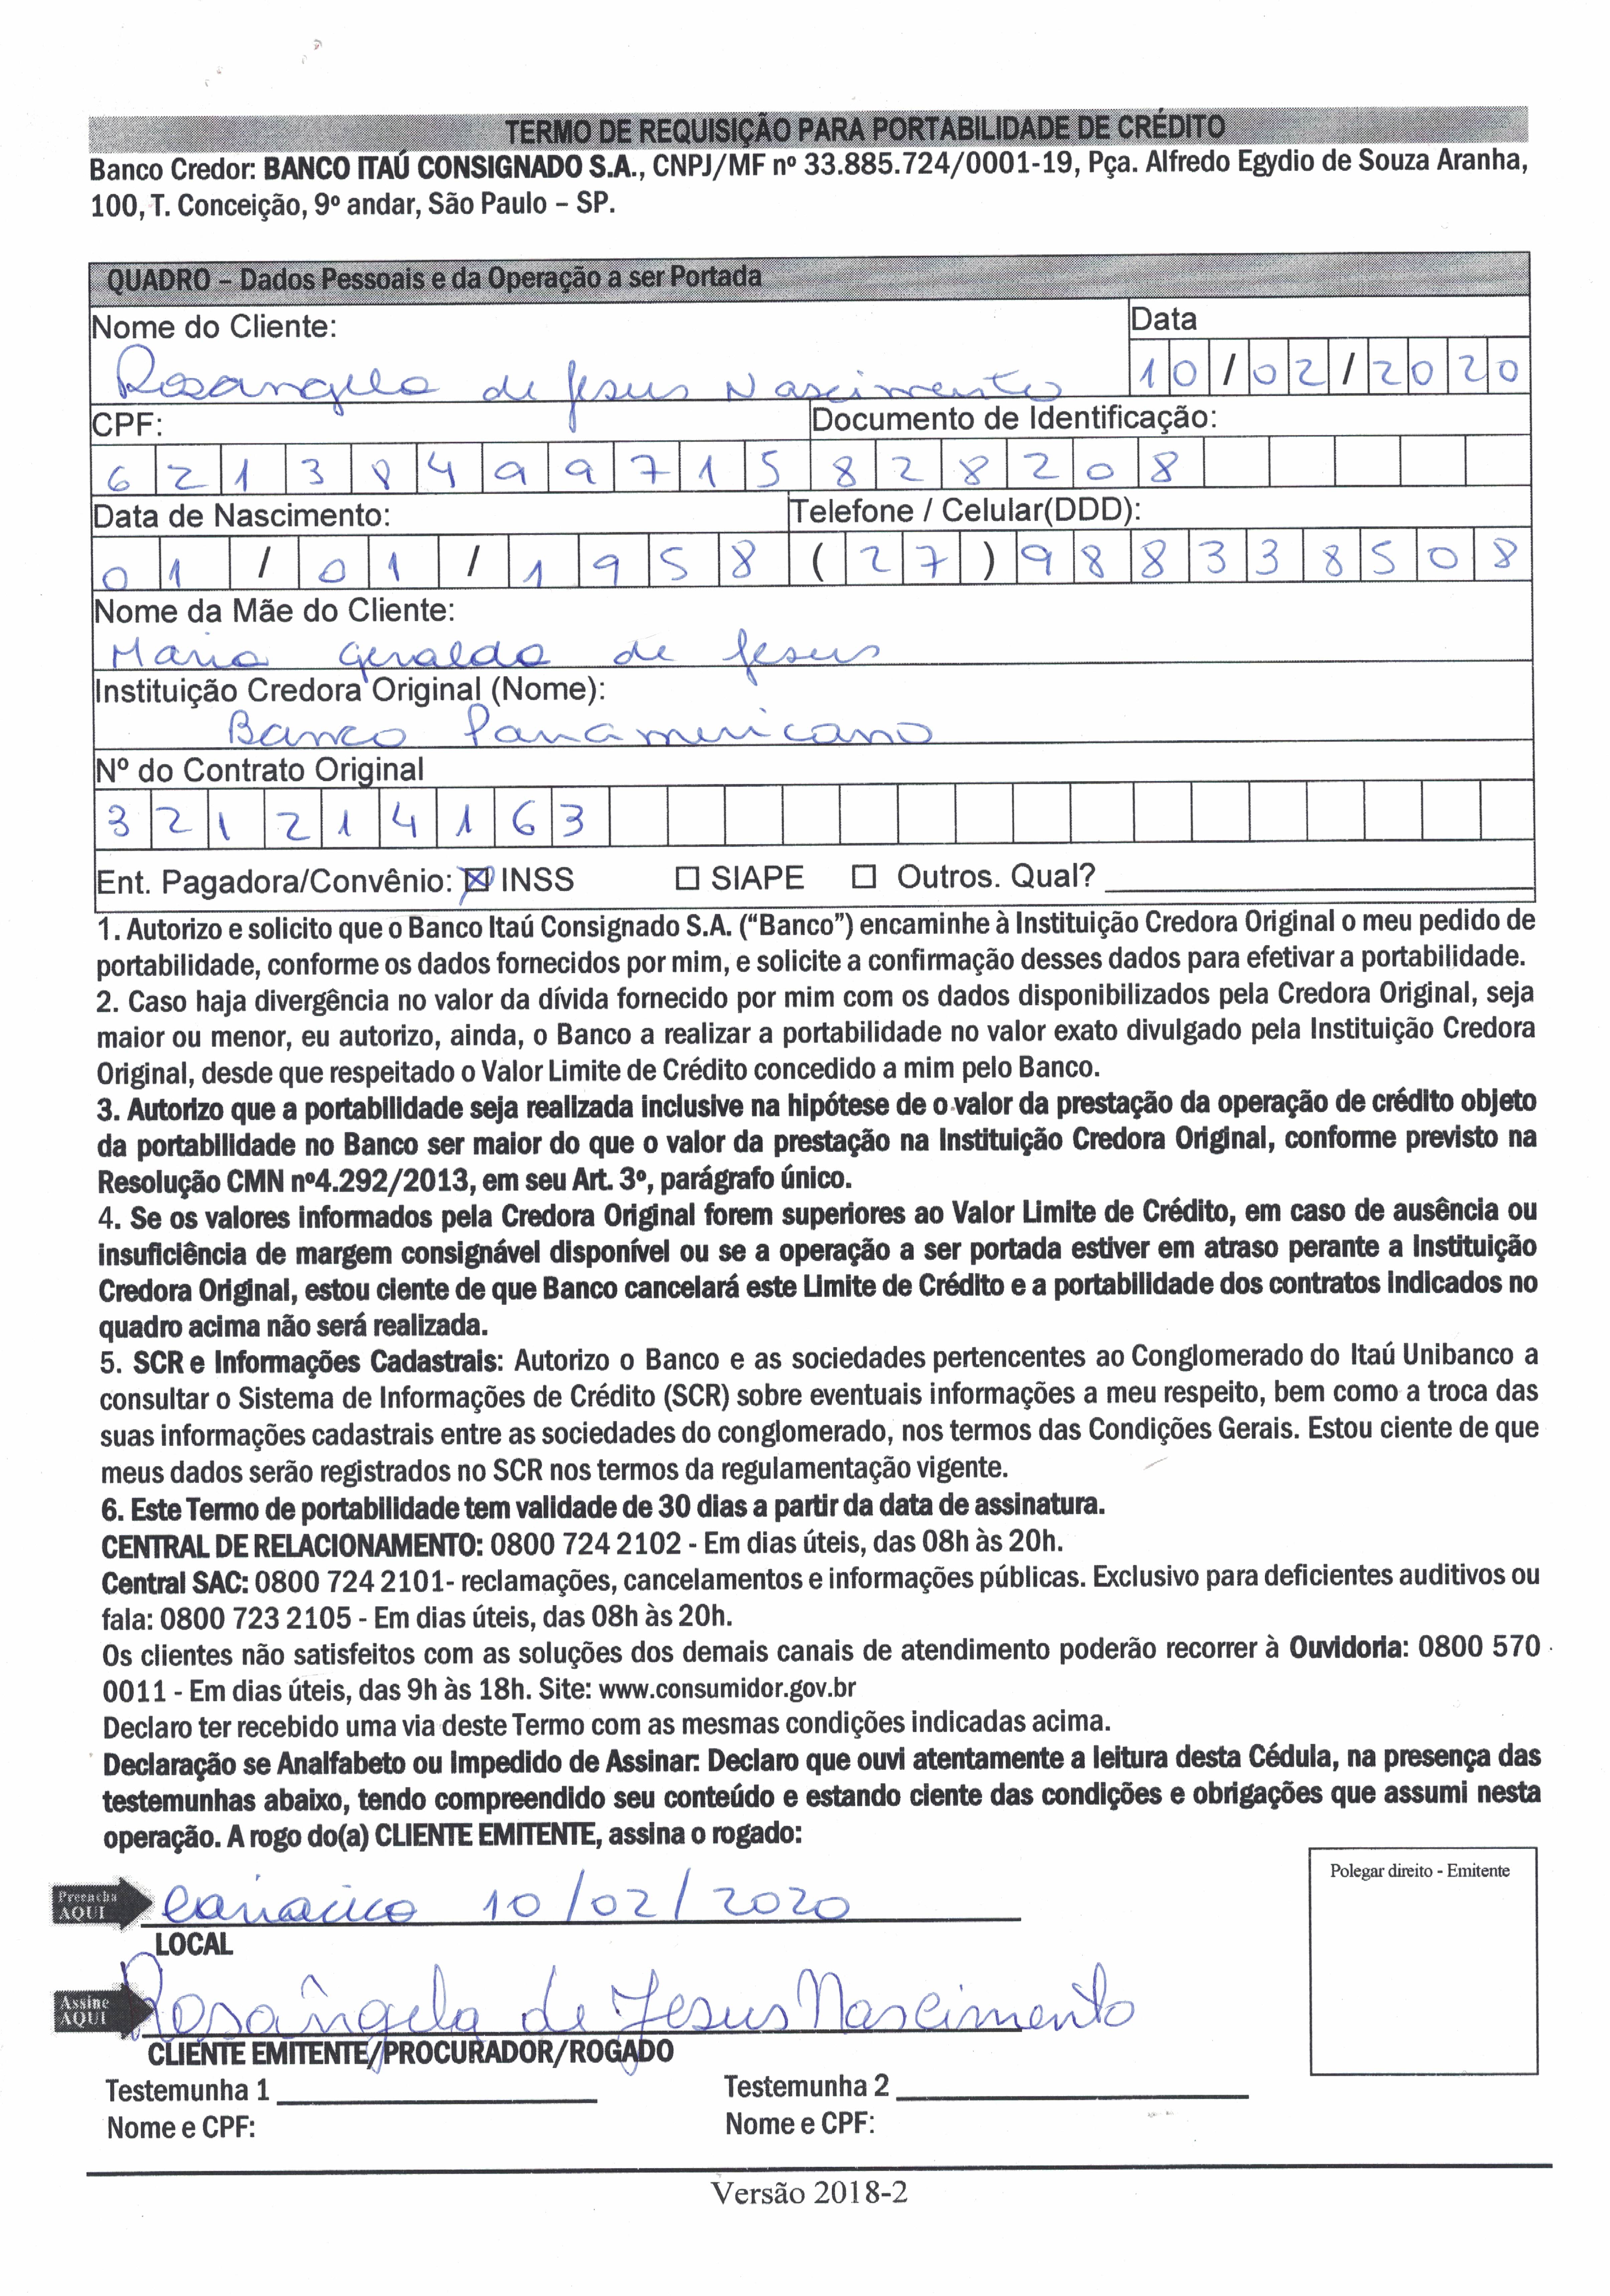 TERMO DE REQUISIÇÃO PARA PORTABILIDADE DE CRÉDITO
Banco Credor: BANCO ITAÚ CONSIGNADO S.A., CNPJ/MF nº 33.885.724/0001-19, Pça. Alfredo Egydio de Souza Aranha,
100, T. Conceição, 9º andar, São Paulo – SP.
QUADRO – Dados Pessoais e da Operação a ser Portada
Nome do Cliente: Data
Rosangela de Jesus Nascimento 10/02/2020
CPF: Documento de Identificação:
62138499715 828208
Data de Nascimento: Telefone / Celular(DDD):
01/01/1958 (27)988338508
Nome da Mãe do Cliente:
Maria Geralda de Jesus
Instituição Credora Original (Nome):
Banco Panamericano
Nº do Contrato Original
321214163
Ent. Pagadora/Convênio: ☒ INSS ☐ SIAPE ☐ Outros. Qual?
1. Autorizo e solicito que o Banco Itaú Consignado S.A. (“Banco”) encaminhe à Instituição Credora Original o meu pedido de
portabilidade, conforme os dados fornecidos por mim, e solicite a confirmação desses dados para efetivar a portabilidade.
2. Caso haja divergência no valor da dívida fornecido por mim com os dados disponibilizados pela Credora Original, seja
maior ou menor, eu autorizo, ainda, o Banco a realizar a portabilidade no valor exato divulgado pela Instituição Credora
Original, desde que respeitado o Valor Limite de Crédito concedido a mim pelo Banco.
3. Autorizo que a portabilidade seja realizada inclusive na hipótese de o valor da prestação da operação de crédito objeto
da portabilidade no Banco ser maior do que o valor da prestação na Instituição Credora Original, conforme previsto na
Resolução CMN nº4.292/2013, em seu Art. 3º, parágrafo único.
4. Se os valores informados pela Credora Original forem superiores ao Valor Limite de Crédito, em caso de ausência ou
insuficiência de margem consignável disponível ou se a operação a ser portada estiver em atraso perante a Instituição
Credora Original, estou ciente de que Banco cancelará este Limite de Crédito e a portabilidade dos contratos indicados no
quadro acima não será realizada.
5. SCR e Informações Cadastrais: Autorizo o Banco e as sociedades pertencentes ao Conglomerado do Itaú Unibanco a
consultar o Sistema de Informações de Crédito (SCR) sobre eventuais informações a meu respeito, bem como a troca das
suas informações cadastrais entre as sociedades do conglomerado, nos termos das Condições Gerais. Estou ciente de que
meus dados serão registrados no SCR nos termos da regulamentação vigente.
6. Este Termo de portabilidade tem validade de 30 dias a partir da data de assinatura.
CENTRAL DE RELACIONAMENTO: 0800 724 2102 - Em dias úteis, das 08h às 20h.
Central SAC: 0800 724 2101- reclamações, cancelamentos e informações públicas. Exclusivo para deficientes auditivos ou
fala: 0800 723 2105 - Em dias úteis, das 08h às 20h.
Os clientes não satisfeitos com as soluções dos demais canais de atendimento poderão recorrer à Ouvidoria: 0800 570
0011 - Em dias úteis, das 9h às 18h. Site: www.consumidor.gov.br
Declaro ter recebido uma via deste Termo com as mesmas condições indicadas acima.
Declaração se Analfabeto ou Impedido de Assinar: Declaro que ouvi atentamente a leitura desta Cédula, na presença das
testemunhas abaixo, tendo compreendido seu conteúdo e estando ciente das condições e obrigações que assumi nesta
operação. A rogo do(a) CLIENTE EMITENTE, assina o rogado:
Polegar direito - Emitente
Preencha AQUI Cariacica 10/02/2020
LOCAL
Assine AQUI Rosângela de Jesus Nascimento
CLIENTE EMITENTE/PROCURADOR/ROGADO
Testemunha 1 Testemunha 2
Nome e CPF: Nome e CPF:
Versão 2018-2